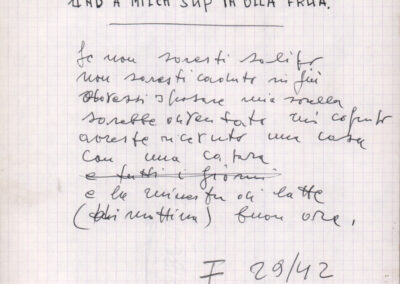 UND A MILCH SUP IN OLLA FRUA.
Se non saresti salito
non saresti caduto in giù
sposare mia sorella
sarebbe diventato mio cognato
avreste ricevuto una casa
con una capra
e tutti i giorni
e la minestra di latte
(di mattina) buon ora.
I 29/42